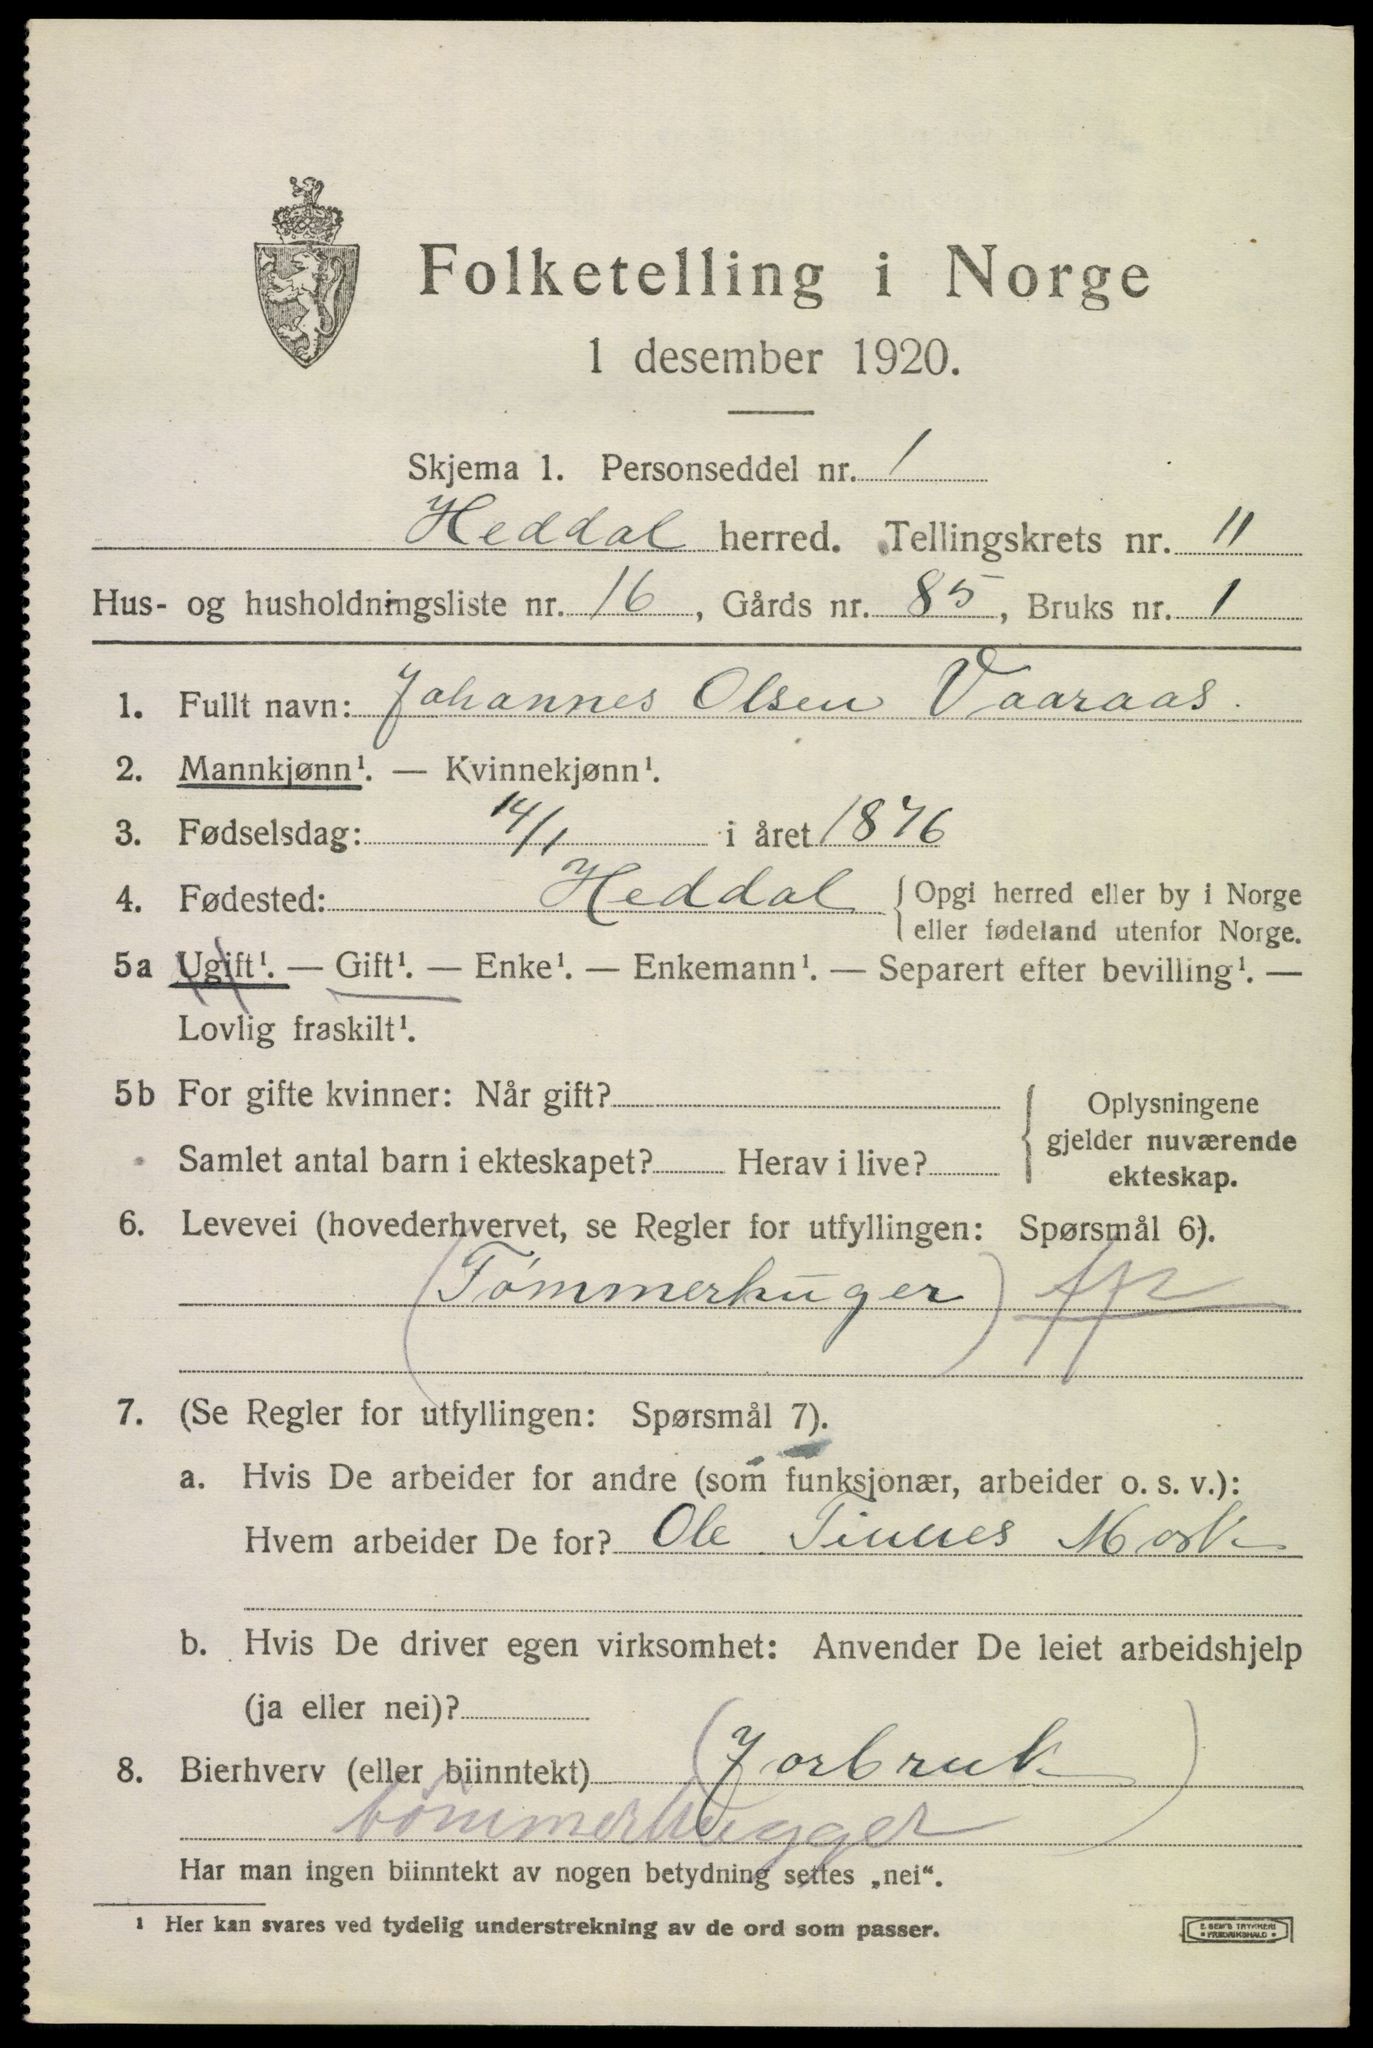 Folketelling i Norge
1 desember 1920.
Skjema 1. Personseddel nr. 1
Heddal herred. Tellingskrets nr. 11
Hus- og husholdningsliste nr. 16, Gårds nr. 85, Bruks nr. 1
1. Fullt navn: Johannes Olsen Vaaraas.
2. Mannkjønn¹. — Kvinnekjønn¹.
3. Fødselsdag: 14/1 i året 1876
4. Fødested: Heddal { Opgi herred eller by i Norge
eller fødeland utenfor Norge.
5a Ugift¹. — Gift¹. — Enke¹. — Enkemann¹. — Separert efter bevilling¹. —
Lovlig fraskilt¹.
5b For gifte kvinner: Når gift?
Samlet antal barn i ekteskapet? Herav i live?
{ Oplysningene
gjelder nuværende
ekteskap.
6. Levevei (hovederhvervet, se Regler for utfyllingen: Spørsmål 6).
(Tømmerhuger)
7. (Se Regler for utfyllingen: Spørsmål 7).
a. Hvis De arbeider for andre (som funksjonær, arbeider o. s. v.):
Hvem arbeider De for? Ole Tinnes Mork
b. Hvis De driver egen virksomhet: Anvender De leiet arbeidshjelp
(ja eller nei)?
8. Bierhverv (eller biinntekt) (Jorbruk)
tømmerhugger
Har man ingen biinntekt av nogen betydning settes „nei“.
¹ Her kan svares ved tydelig understrekning av de ord som passer.
E. SEM'S TRYKKERI
• FREDRIKSHALD •